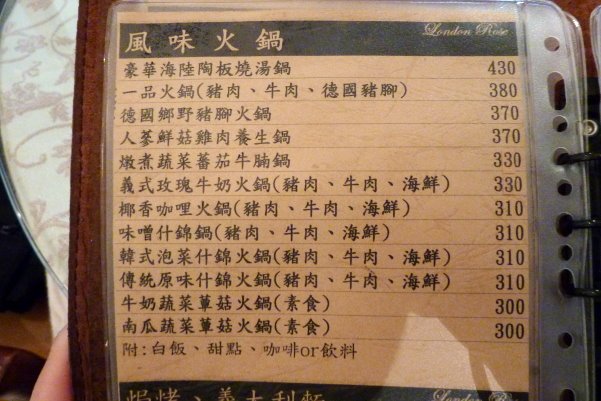 風味火鍋 London Rose
豪華海陸陶板燒湯鍋 430
一品火鍋(豬肉、牛肉、德國豬腳) 380
德國鄉野豬腳火鍋 370
人蔘鮮菇雞肉養生鍋 370
燉煮蔬菜蕃茄牛腩鍋 330
義式玫瑰牛奶火鍋(豬肉、牛肉、海鮮) 330
椰香咖哩火鍋(豬肉、牛肉、海鮮) 310
味噌什錦鍋(豬肉、牛肉、海鮮) 310
韓式泡菜什錦火鍋(豬肉、牛肉、海鮮) 310
傳統原味什錦火鍋(豬肉、牛肉、海鮮) 310
牛奶蔬菜蕈菇火鍋(素食) 300
南瓜蔬菜蕈菇火鍋(素食) 300
附:白飯、甜點、咖啡or飲料
焗烤、義大利麵 London Rose